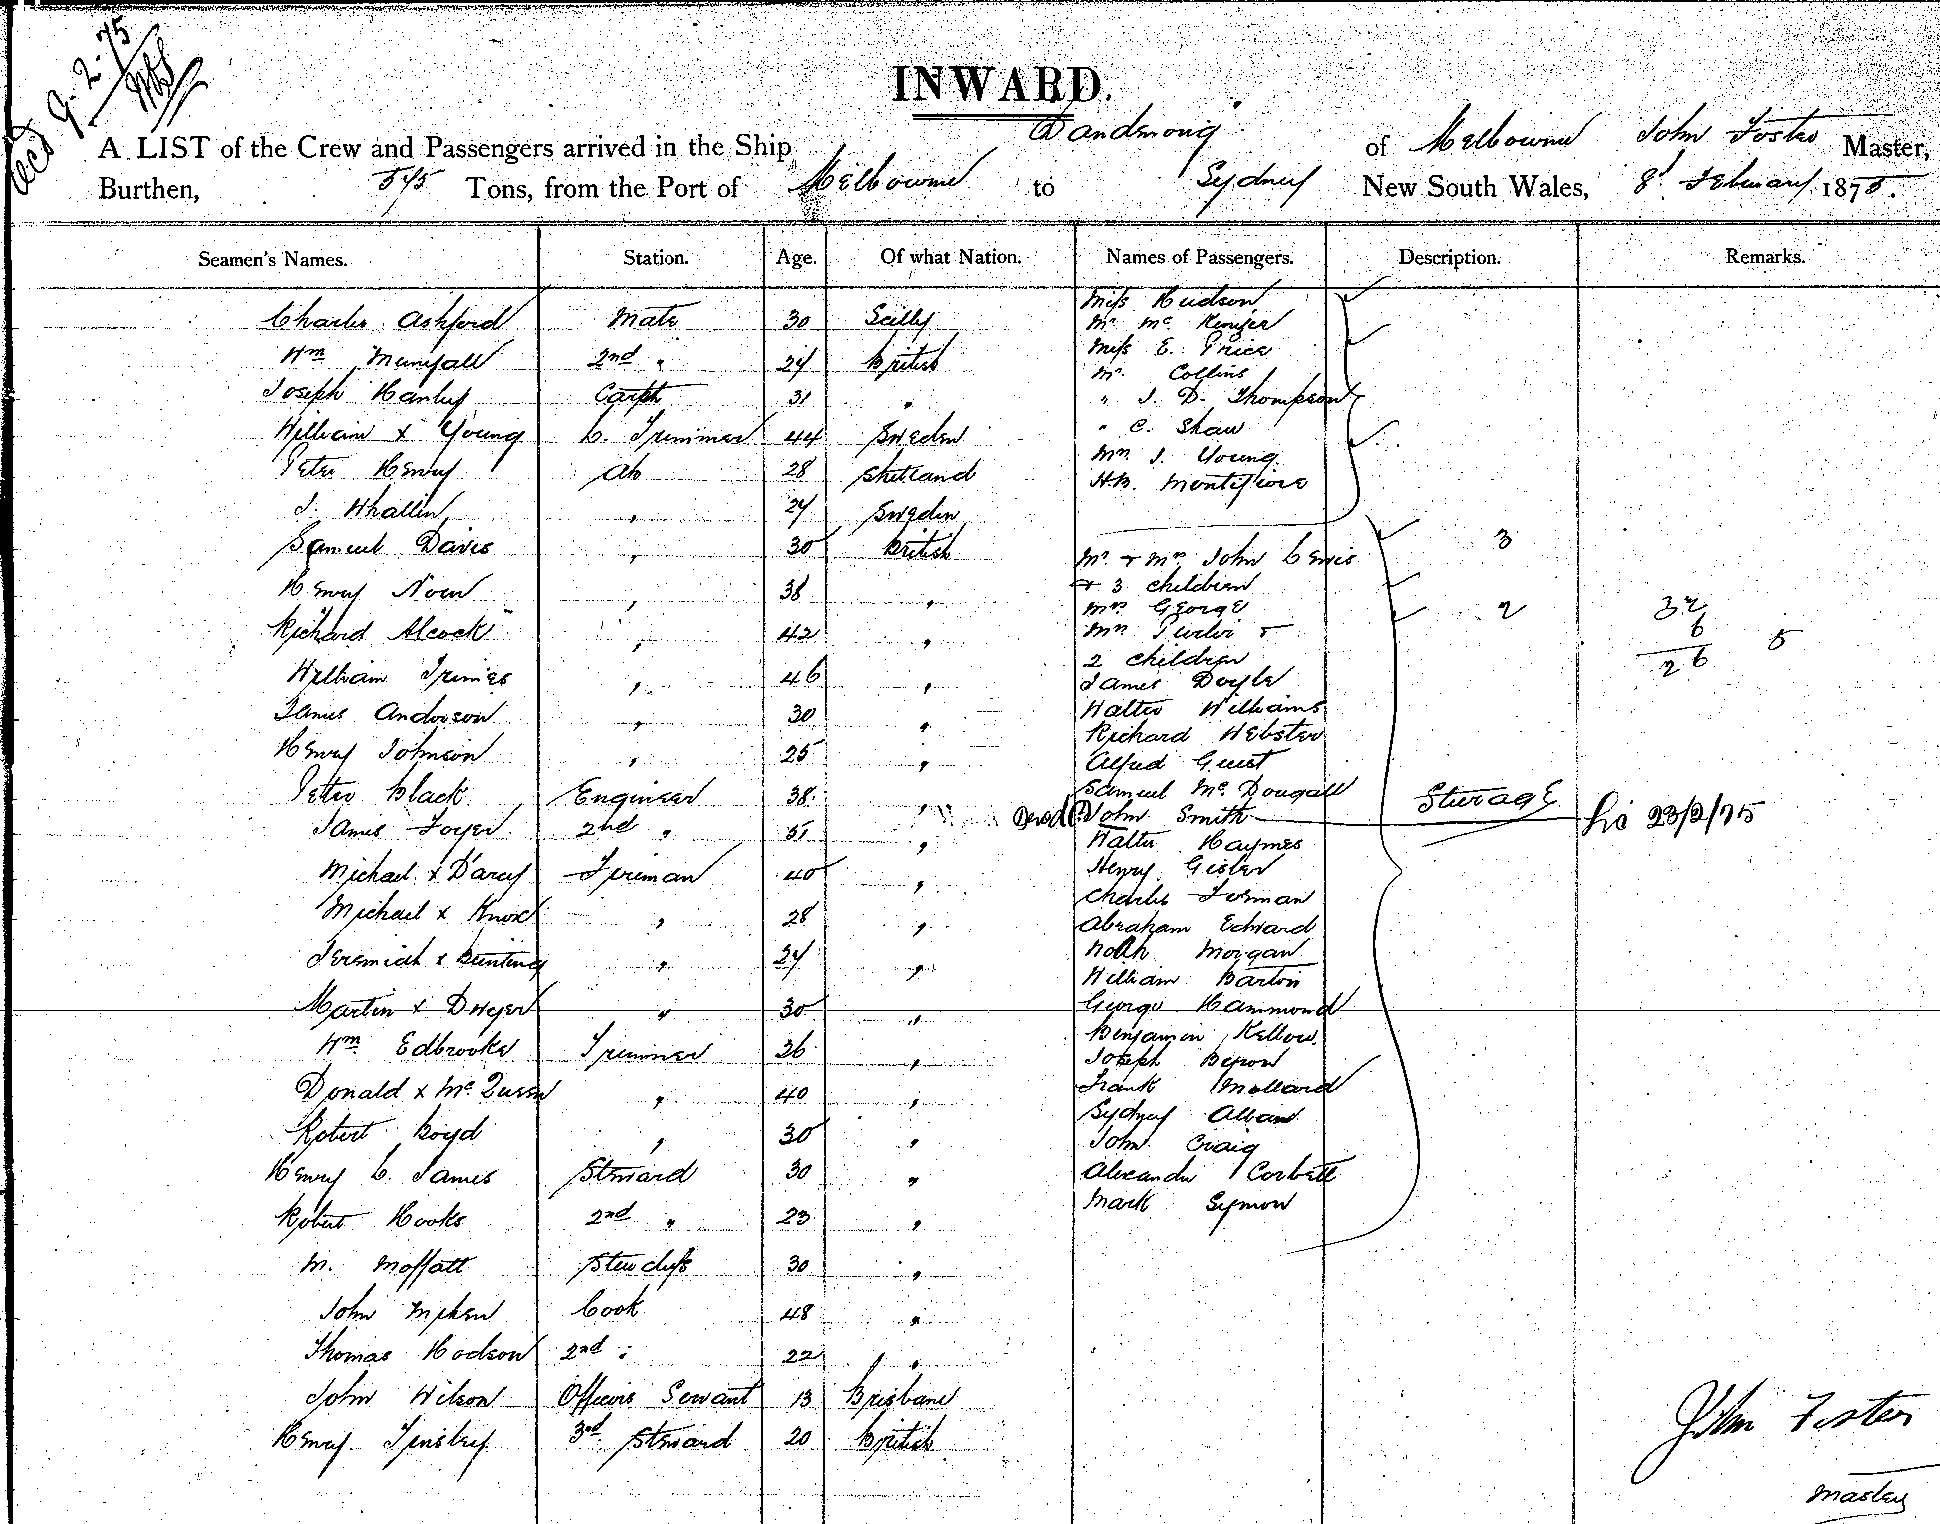 Recd 9.2.75
INWARD.
A LIST of the Crew and Passengers arrived in the Ship Dandenong of Melbourne John Foster Master,
Burthen, 575 Tons, from the Port of Melbourne to Sydney New South Wales, 8th February 1875.
Seamen's Names. Station. Age. Of what Nation. Names of Passengers. Description. Remarks.
Charles Ashford Mate 30 Scilly
Wm 2nd " British
Joseph Hanley Carptr 31 "
William x Young C. Trimmer 44 Sweden
Peter Henry AB 28 Shetland
J. Whallin " Sweden
Samuel Davis " 30 British
Henry " 38 "
Richard Alcock " 42 "
William " 46 "
James Anderson " 30 "
Henry Johnson " 25 "
Peter Black Engineer 38 "
James 2nd " "
Michael x D'arcy Fireman 40 "
Michael x Knox " 28 "
Jeremiah x Bunting " "
Martin x Dwyer " 30 "
Wm Edbrooke Trimmer "
Donald x Mc " 40 "
Robert Boyd " 30 "
Henry C. James Steward 30 "
Robert Hooks 2nd " 23 "
M. Moffatt Stewdess 30 "
John Cook 48 "
Thomas Hodson 2nd " 22 "
John Wilson Officers Servant 13 Brisbane
Henry Tinsley 3rd Steward 20 British
Miss Hudson
Mr Mc
Miss E. Price
Mr Collins
" J. D. Thompson
" C. Shaw
Mrs J. Young
H.B. Montefiore
Mr & Mrs John Lewis 3
& 3 children
Mrs George 2
Mrs &
2 children
James Doyle
Walter Williams
Richard Webster
Alfred Guest
Samuel McDougall Steerage
John Smith 23/2/75
Walter Haymes
Henry Gisler
Charles Forman
Abraham Edward
Noah Morgan
William Barton
George Hammond
Benjamin Kellow
Joseph
Frank Mollard
Sydney Alban
John Craig
Alexander Corbett
Mark Symon
32
6
26 5
John Foster
Master